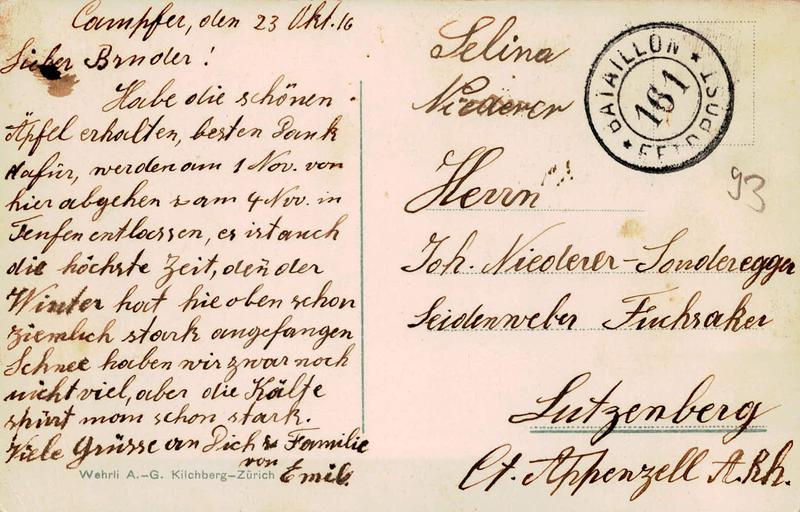 Campfer, den 23 Okt. 16
Lieber Bruder!
Habe die schönen
Äpfel erhalten, besten Dank
dafür, werden am 1 Nov. von
hier abgehen & am 4 Nov. in
Teufen entlassen, es ist auch
die höchste Zeit, deñ der
Winter hat hie oben schon
ziemlich stark angefangen
Schnee haben wir zwar noch
nicht viel, aber die Kälte
spürt man schon stark.
Viele Grüsse an Dich & Familie
von
Emil.
Wehrli A.-G. Kilchberg-Zürich
Selina
Niederer
BATAILLON
161
FELDPOST
93
Herrn
Joh. Niederer-Sonderegger
Seidenweber Fuchsaker
Lutzenberg
Ct. Appenzell A. Rh.